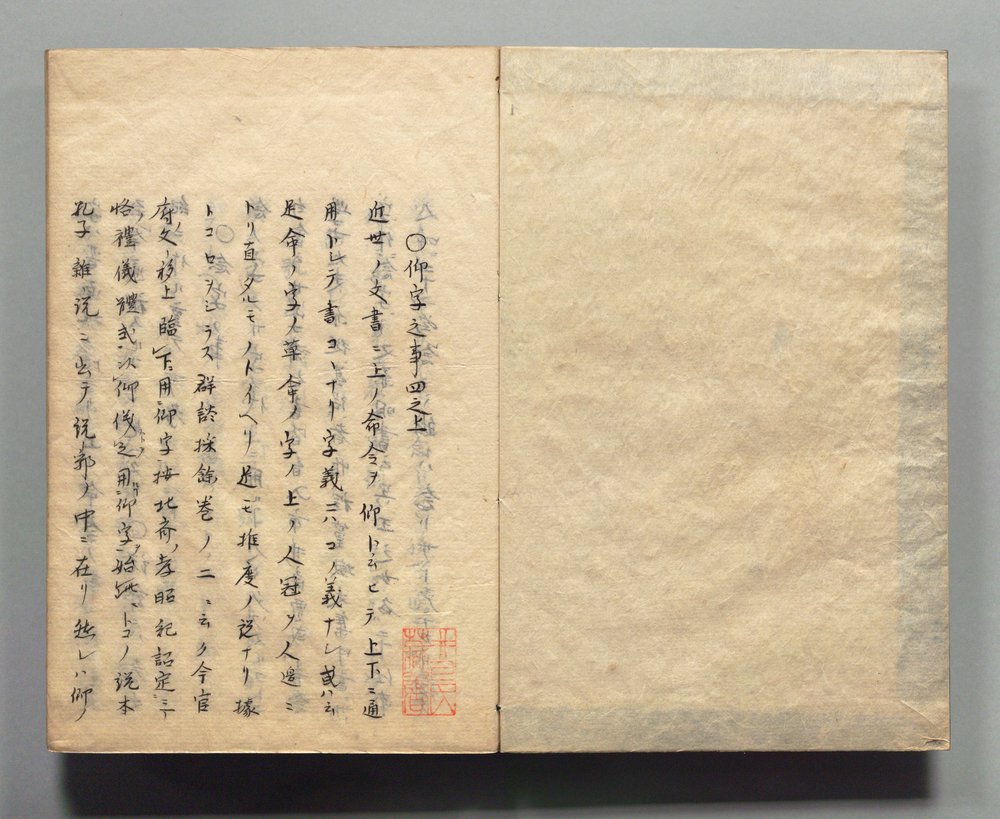 〇仰字之事四之上
近世ノ文書ニ上ノ命令ヲ仰ト云ヒテ上下ニ通
用トシテ書コトナリ字義ニハコノ義ナシ或ハ云
是命ノ字ノ草命ノ字ノ上ノ人冠ヲ人邊ニ
トリ直タルモノトイヘリ是モ推度ノ説ナリ據
トコロヲシラス群談採餘巻ノ二ニ云ク今官
府文移上臨下用仰字按北斉ノ孝昭紀詔定三
恪禮儀體式次仰儀之用仰字始此トコノ説本
孔子雜説ニ出テ説郛ノ中ニ在リ然レハ仰ノ